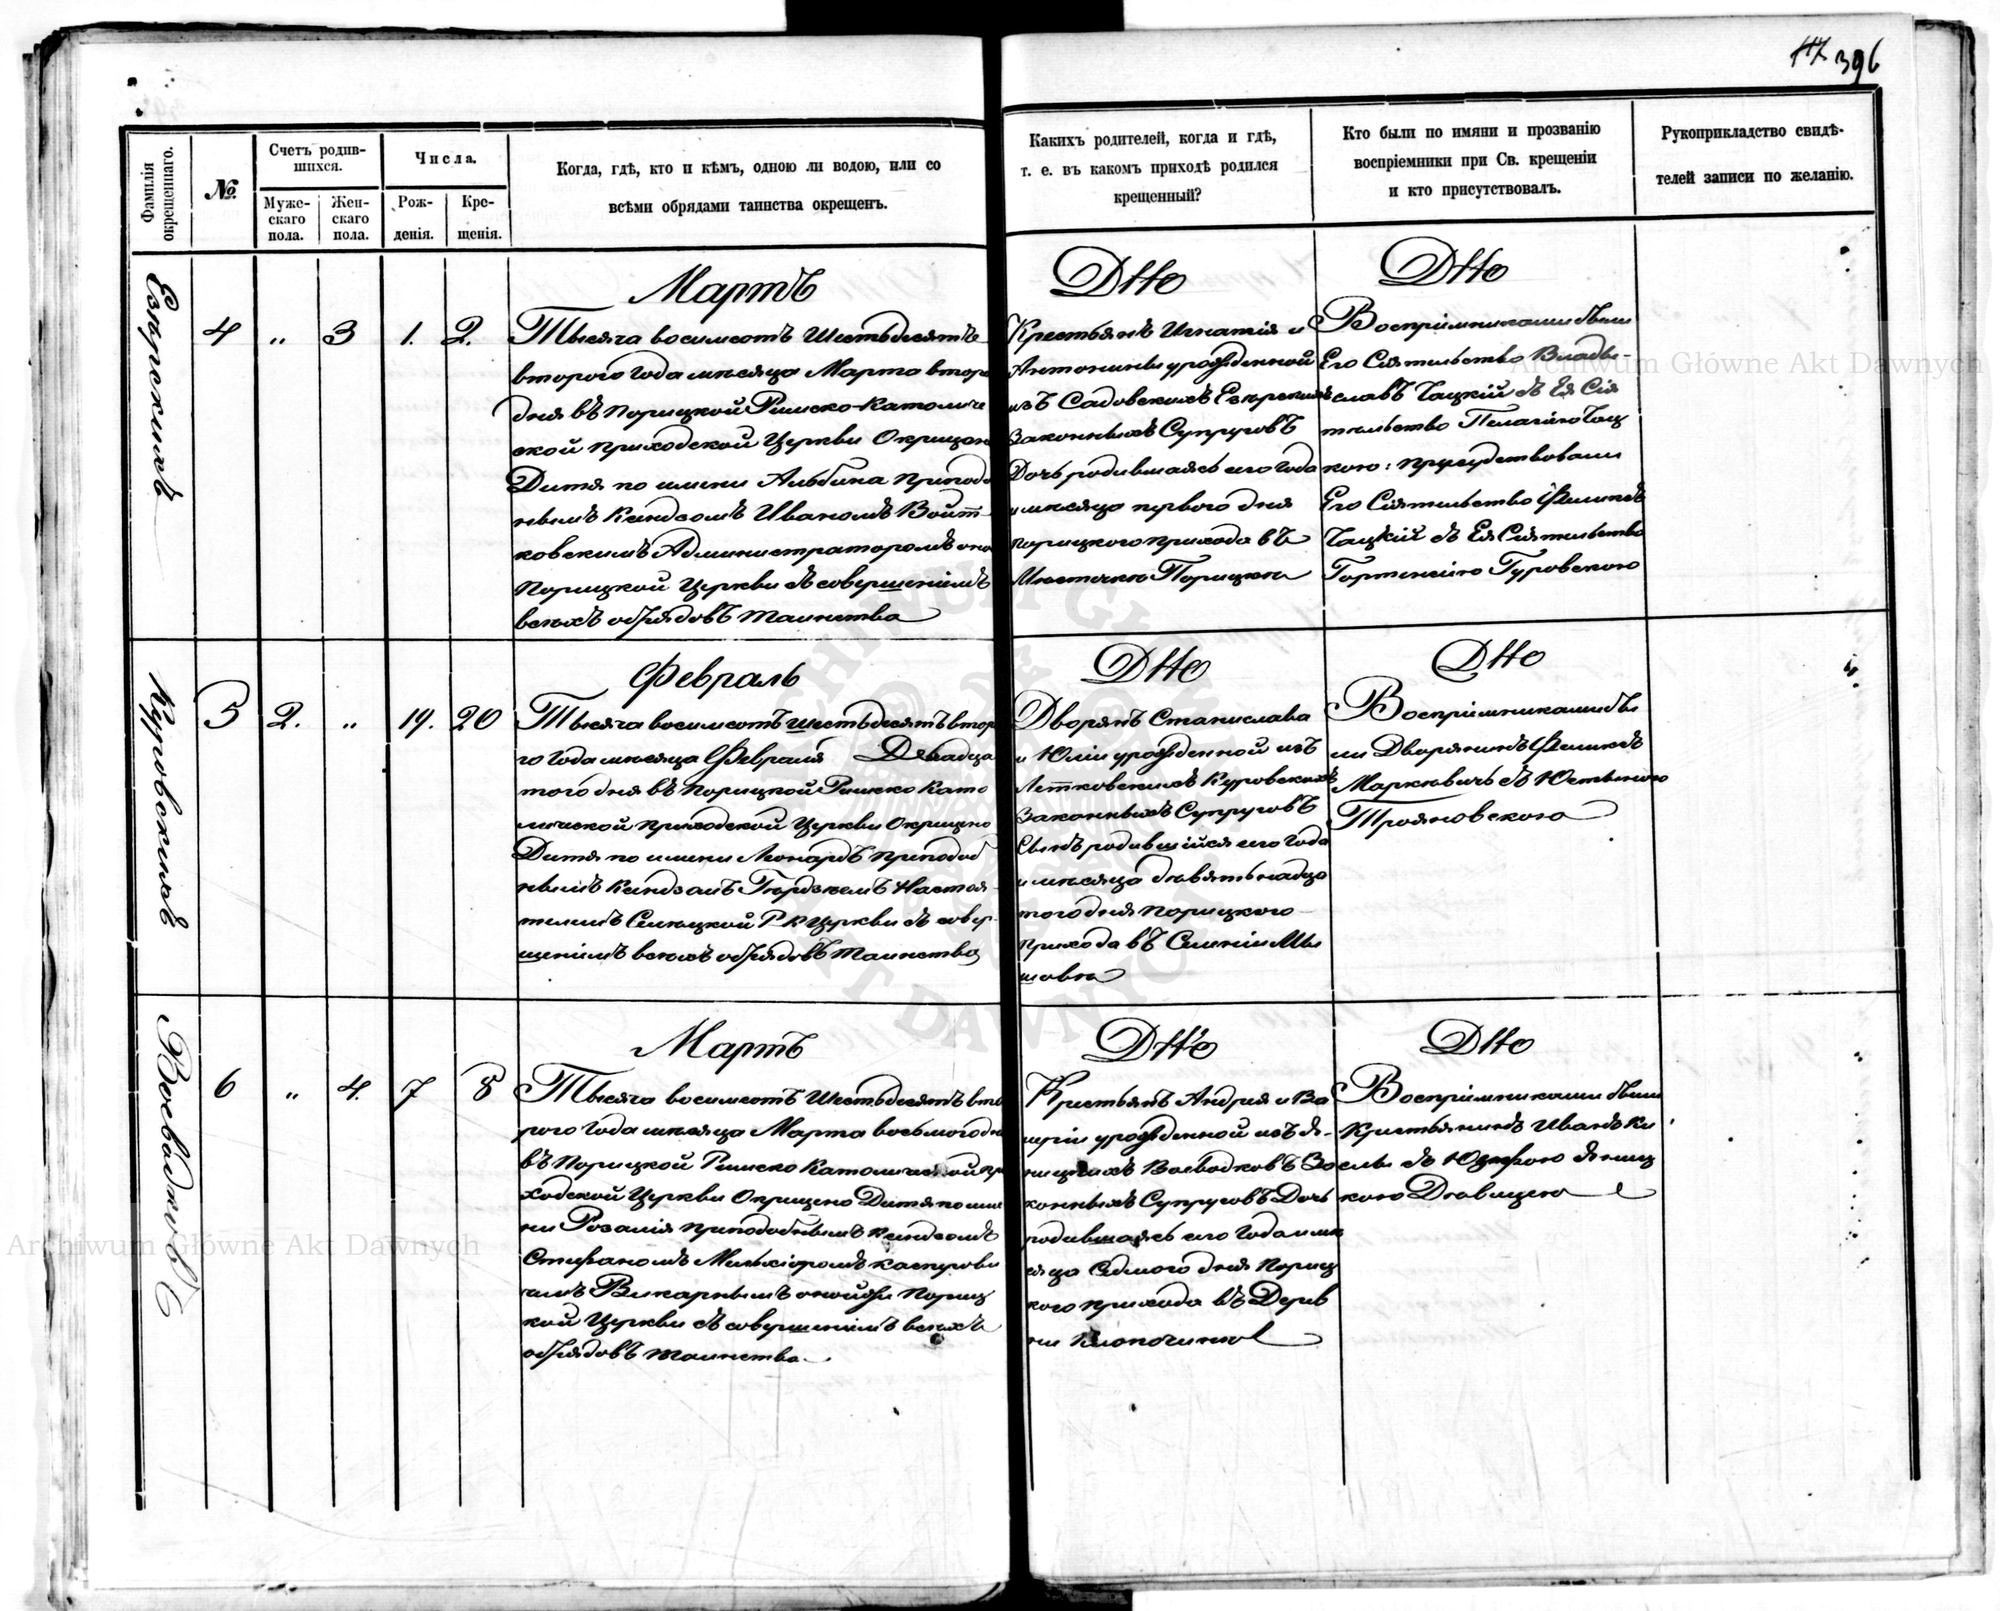 117 396
Фамилія окрещеннаго.
№.
Счетъ родив-
шихся.
Муже-
скаго
пола.
Жен-
скаго
пола.
Числа.
Рож-
денія.
Кре-
щенія.
Когда, гдѣ, кто и кѣмъ, одною ли водою, или со
всѣми обрядами таинства окрещенъ.
Какихъ родителей, когда и гдѣ,
т. е. въ какомъ приходѣ родился
крещенный?
Кто были по имяни и прозванію
воспріемники при Св. крещеніи
и кто присутствовалъ.
Рукоприкладство свидѣ-
телей записи по желанію.
Езерскихъ
4 „ 3 1. 2.
Мартъ
Тысяча восимсотъ Шестьдесятъ
второго Года мѣсяца Марта второ
дня въ Порицкой Римско-Католиче
ской приходской Церкви Окрищено
Дитя по имени Альбина Приподо
нымъ Ксіндзомъ Иваномъ Войт-
ковскимъ Администраторомъ оно
Порицкой Церкви съ совершеніимъ
всѣхъ обрядовъ таинства
Dtto
Крестьянъ Игнатія и
Антонины урожденной
изъ Садовскихъ Езерскихъ
Законныхъ Супруговъ
Дочь родившаясь его года
и мѣсяца первого дня
порицкого прихода въ
Мѣстечкѣ Порицкѣ
Dtto
Воспріимниками были
Его Сіятильство Влади-
славъ Чацкій съ Ея Сія
тильство Пелагіею Чац
кою: присудствовали
Его Сіятильство Филиксъ
Чацкій съ Ея Сіятильство
Гортензіею Гуровскою
Куровскихъ
5 2. „ 19. 20
Февраль
Тысяча восимсотъ шестьдесятъ втор
го Года мѣсяца Февраля Двадца
того дня въ Порицкой Римско Като
лической приходской Церкви Окрищено
Дитя по имени Леонардъ Приподоб
нымъ Ксіндзомъ Настоя-
тилимъ Р К Церкви съ совер-
щеніимъ всѣхъ обрядовъ Таинства
Dtto
Дворянъ Станислава
и Юліи урожденной изъ
Летковскихъ Куровскихъ
Законныхъ Супруговъ
Сынъ родившійся его Года
и мѣсяца девятьнадца
того дня Порицкого
Прихода въ Силеніи Мы
шовѣ
Dtto
Воспріимниками бы
ли Дворянинъ Филиксъ
Маркевичь съ Юстиною
Трояновскою
Воеводковъ
6 „ 4. 7 8
Мартъ
Тысяча восимсотъ Шестьдесятъ вто
рого Года мѣсяца Марта восьмого дня
въ Порицкой Римско Католической при
ходской Церкви Окрищено Дитя по име
ни Розалія приподобнымъ Ксіндзомъ
Стифаномъ Мильхіоромъ Каспрови
чимъ Викарнымъ онойжи Пориц
кой Церкви съ совершеніимъ всѣхъ
обрядовъ таинства
Dtto
Кристьянъ Андрея и Ва
леріи урожденной изъ Я-
ницкихъ Воеводковъ За
конныхъ Супруговъ Дочь
родившаясь его Года и мѣ
сяца Седмого дня Пориц
кого прихода въ Дерев
ни Клопочинѣ
Dtto
Воспріимниками были
Кристьянинъ Иванъ Ки
сель съ Юзефою Яниц
кою Девицею
Archiwum Główne Akt Dawnych
Archiwum Główne Akt Dawnych
ARCHIWUM GŁÓWNE AKT DAWNYCH